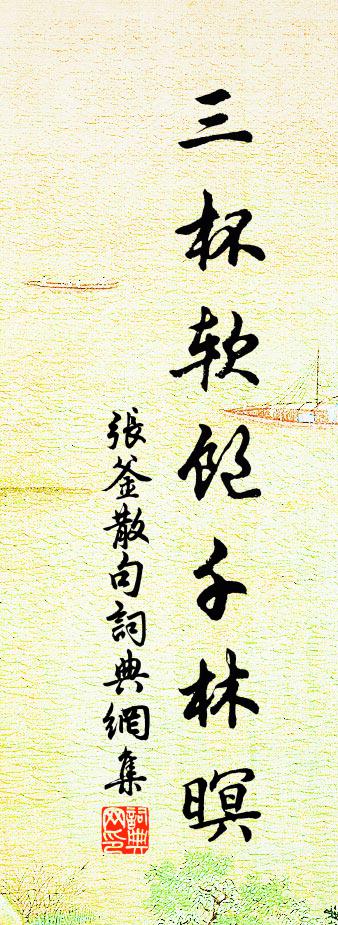 三杯软饱千林暝
張釜散句詞典網集
詞典网印